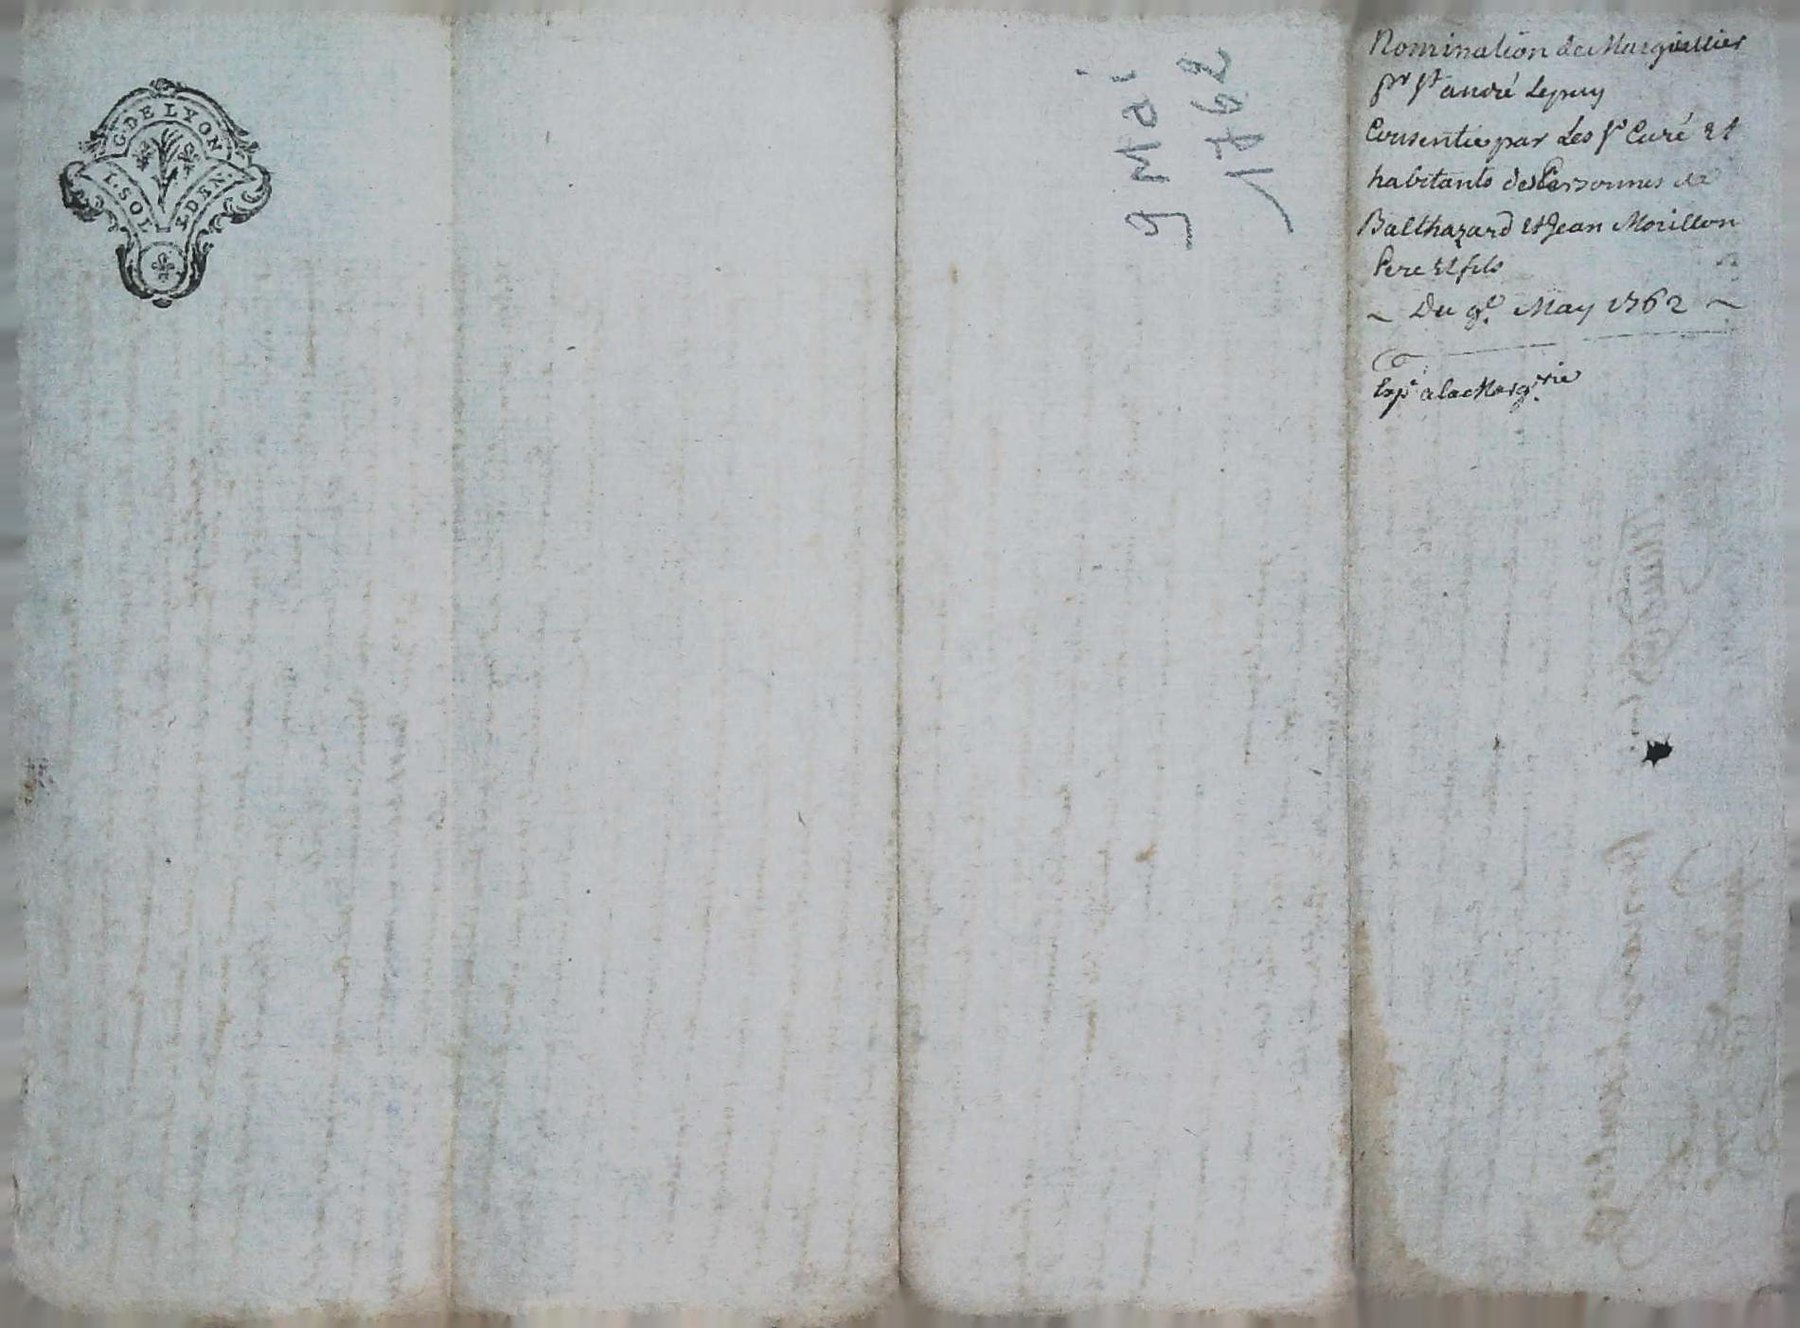 G. DE LYON
1. SOL 4. DEN.
9 Mai
1762
Nomination de Marguillier
pr St andré Lepuy
Consentie par Les Sr Curé Et
habitants des Personnes de
Balthazard Et Jean Morillon
Pere Et fils
~ Du 9e. May 1762 ~
Exp.e a la Marg.rie